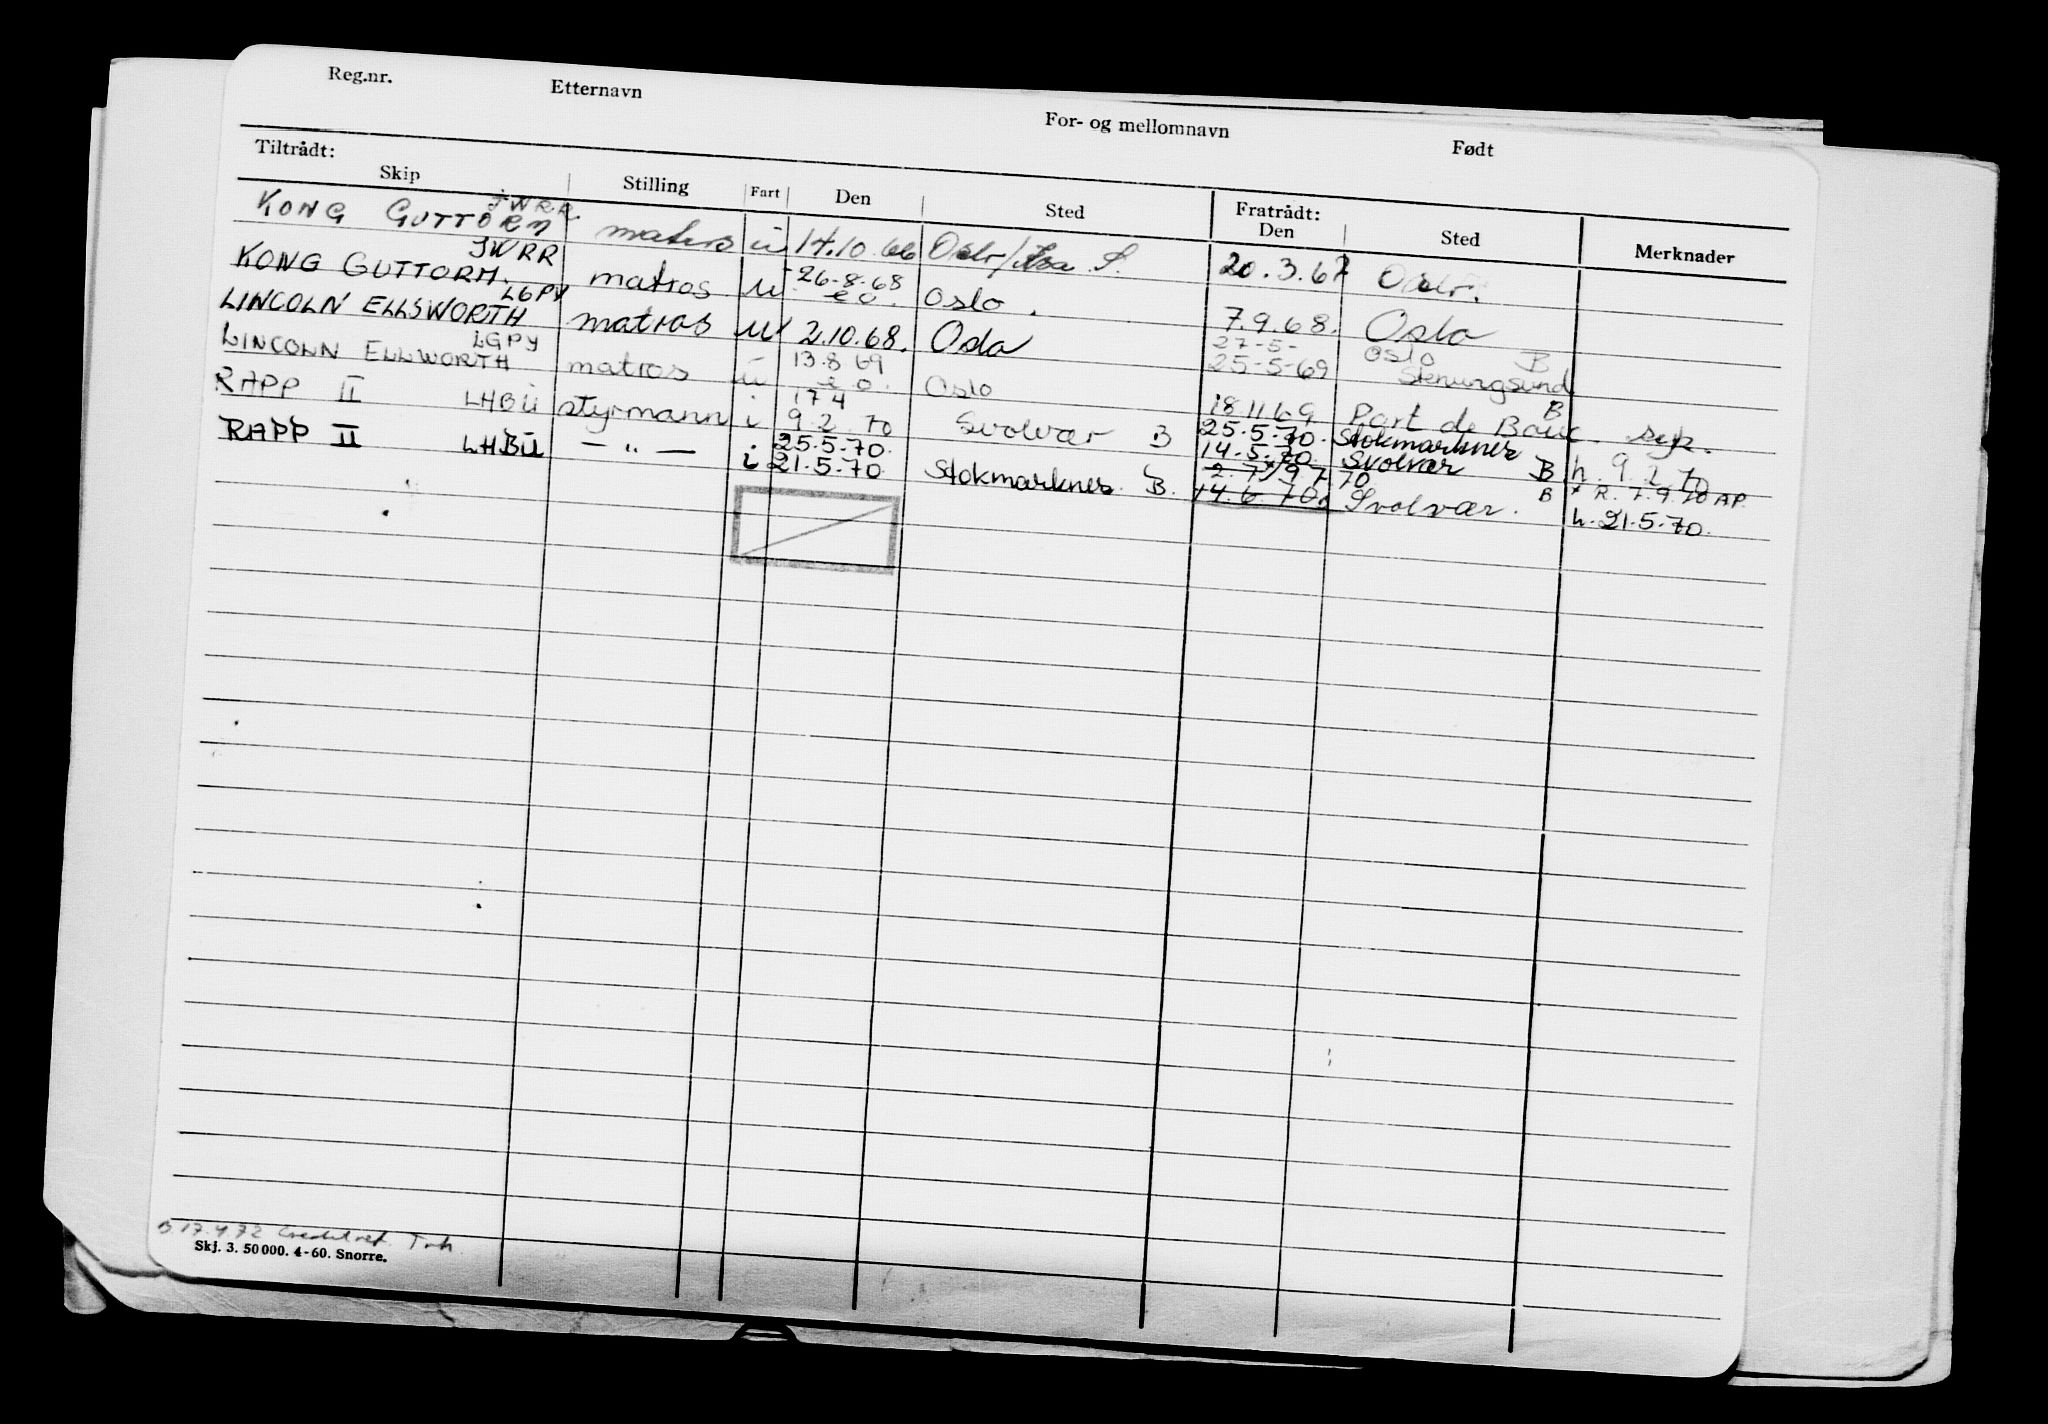 Reg.nr. Etternavn For- og mellomnavn Født
Tiltrådt: Fratrådt:
Skip Stilling Fart Den Sted Den Sted Merknader
JWRR
KONG GUTTORM matros u 14.10.66 Oslo/ S. 20.3.67 Oslo.
JWRR
KONG GUTTORM. matros u 26-8-68 e o. Oslo. 7.9.68. Oslo
LGPY
LINCOLN ELLSWORTH matros u 2.10.68. Oslo 27-5- Oslo B
25-5-69 Stenungsund
LGPY
LINCOLN ELLWORTH matros u 13.8 69 e o. Oslo 18.11 69 Port de Bouc. B syk.
17 4
RAPP II LHBU styrmann i 9.2.70 Svolvær B 25.5.70. Stokmarknes
14.5.70. Svolvær B h. 9.2.70
25.5.70.
RAPP II LHBU — " — i 21.5.70 Stokmarknes. B. 2.7 9 7.70 B * R. 7.9.70 AP.
14.6.70. Svolvær. h. 21.5.70.
B 17.4.72
Skj. 3. 50 000. 4-60. Snorre.